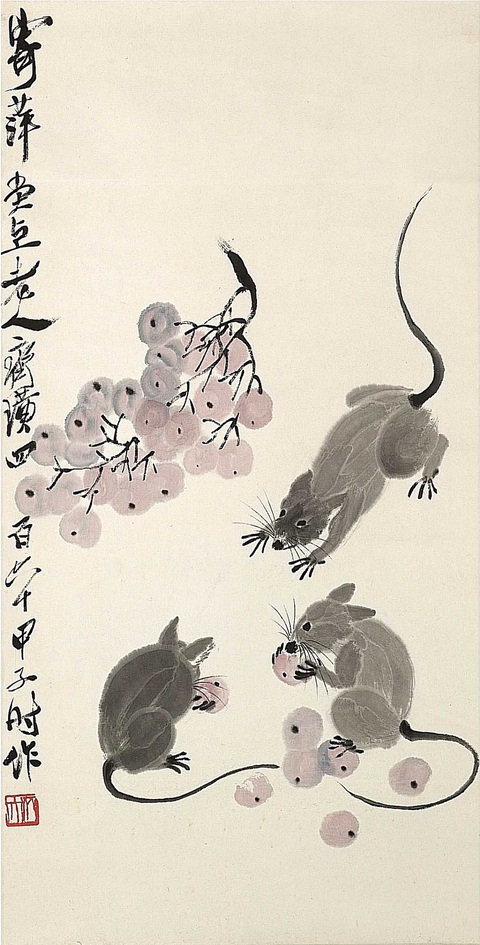 寄萍堂上老人齊璜四百六十甲子时作